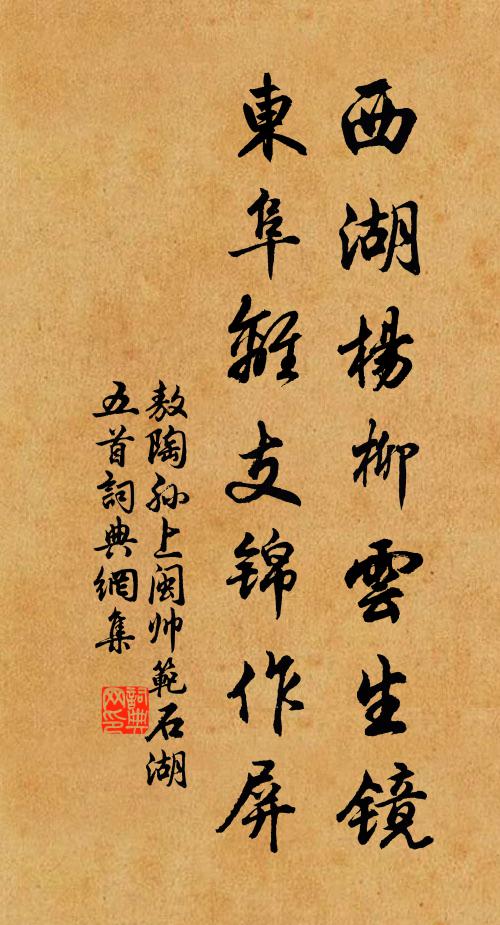 西湖楊柳雲生镜
東阜離支锦作屏
敖陶孙上閩帅範石湖
五首詞典網集
詞典网印